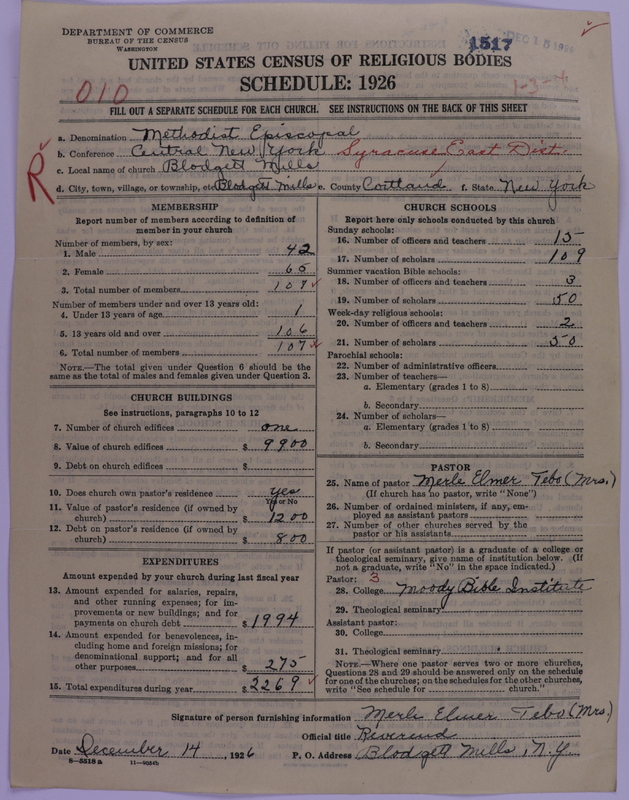 DEPARTMENT OF COMMERCE
BUREAU OF THE CENSUS
WASHINGTON
DEC 15 1926
1517
UNITED STATES CENSUS OF RELIGIOUS BODIES
SCHEDULE: 1926
010
1-3-4
FILL OUT A SEPARATE SCHEDULE FOR EACH CHURCH. SEE INSTRUCTIONS ON THE BACK OF THIS SHEET
R
a. Denomination Methodist Episcopal
b. Conference Central New York Syracuse, East Dist.
c. Local name of church Blodgett Mills
d. City, town, village, or township, etc. Blodgett Mills e. County Cortland f. State New York
MEMBERSHIP
Report number of members according to definition of
member in your church
Number of members, by sex:
1. Male 42
2. Female 65
3. Total number of members 107
Number of members under and over 13 years old:
4. Under 13 years of age 1
5. 13 years old and over 106
6. Total number of members 107
NOTE.—The total given under Question 6 should be the
same as the total of males and females given under Question 3.
CHURCH BUILDINGS
See instructions, paragraphs 10 to 12
7. Number of church edifices one
8. Value of church edifices $ 9900
9. Debt on church edifices $
10. Does church own pastor's residence yes
Yes or No
11. Value of pastor's residence (if owned by
church) $ 1200
12. Debt on pastor's residence (if owned by
church) $ 800
EXPENDITURES
Amount expended by your church during last fiscal year
13. Amount expended for salaries, repairs,
and other running expenses; for im-
provements or new buildings; and for
payments on church debt $ 1994
14. Amount expended for benevolences, in-
cluding home and foreign missions; for
denominational support; and for all
other purposes $ 275
15. Total expenditures during year $ 2269
CHURCH SCHOOLS
Report here only schools conducted by this church
Sunday schools:
16. Number of officers and teachers 15
17. Number of scholars 109
Summer vacation Bible schools:
18. Number of officers and teachers 3
19. Number of scholars 50
Week-day religious schools:
20. Number of officers and teachers 2
21. Number of scholars 50
Parochial schools:
22. Number of administrative officers
23. Number of teachers—
a. Elementary (grades 1 to 8)
b. Secondary
24. Number of scholars—
a. Elementary (grades 1 to 8)
b. Secondary
PASTOR
25. Name of pastor Merle Elmer Tebo (Mrs.)
(If church has no pastor, write "None")
26. Number of ordained ministers, if any, em-
ployed as assistant pastors
27. Number of other churches served by the
pastor or his assistants
If pastor (or assistant pastor) is a graduate of a college or
theological seminary, give name of institution below. (If
not a graduate, write "No" in the space indicated.)
Pastor: 3
28. College Moody Bible Institute
29. Theological seminary
Assistant pastor:
30. College
31. Theological seminary
NOTE.—Where one pastor serves two or more churches,
Questions 28 and 29 should be answered only on the schedule
for one of the churches; on the schedules for the other churches,
write "See schedule for church."
Signature of person furnishing information Merle Elmer Tebo (Mrs.)
Official title Reverend
Date December 14, 1926 P. O. Address Blodgett Mills, N.Y.
8—5518a 11—9084b